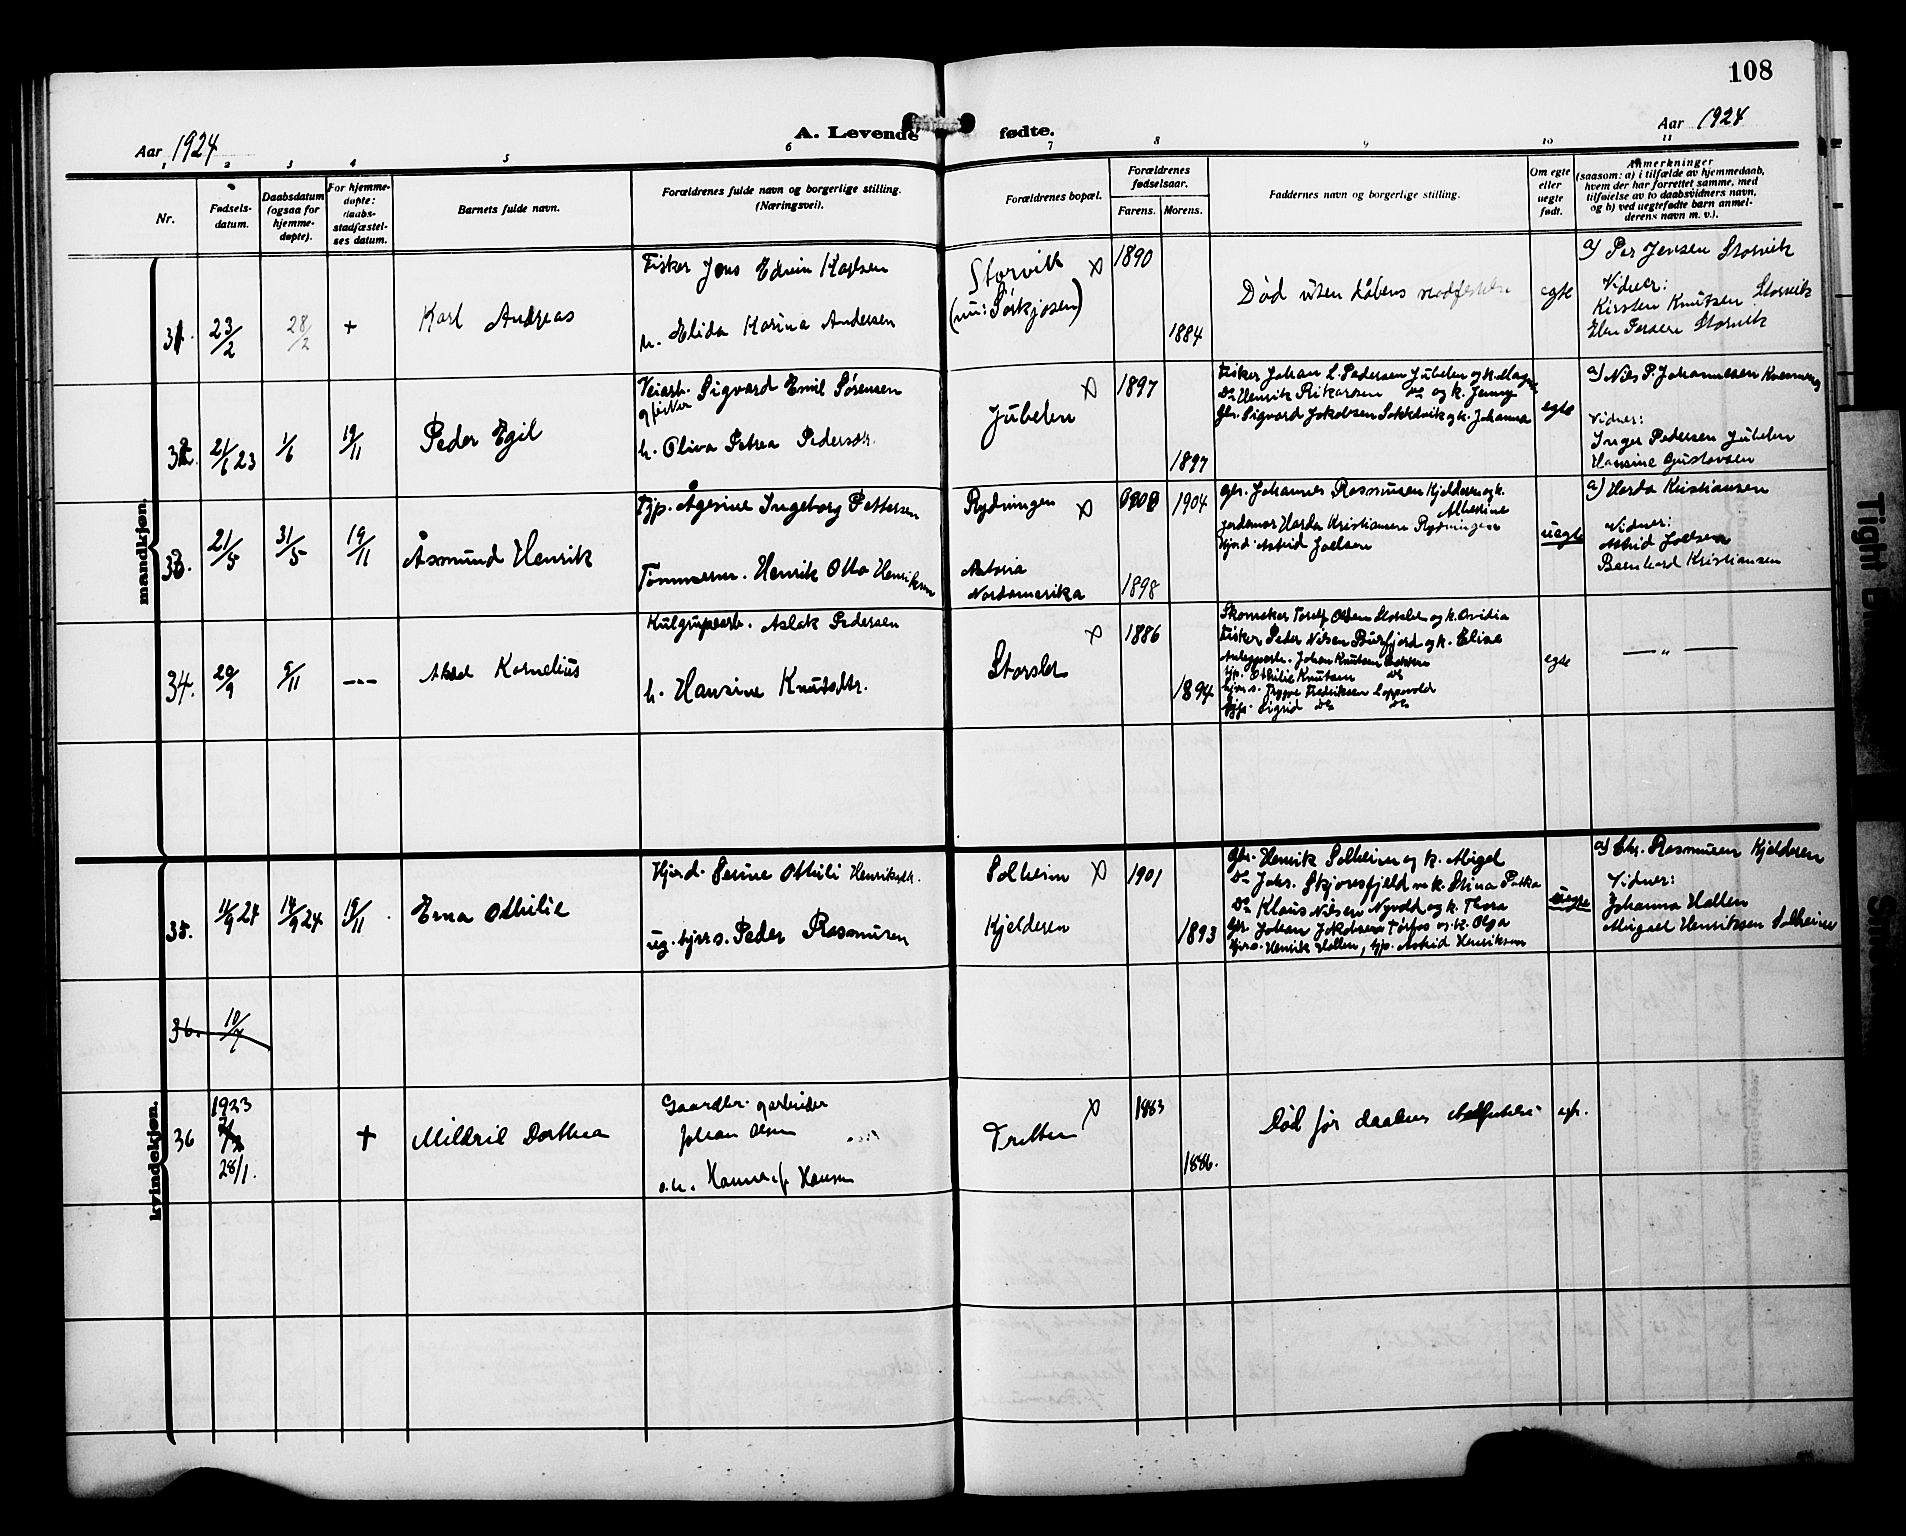 108
Aar 1924
A. Levende fødte.
Aar 1924
1 2 3 4 5 6 7 8 9 10 11
Nr.
Fødsels-
datum.
Daabsdatum
(ogsaa for
hjemme-
døpte).
For hjemme-
døpte:
daabs-
stadfæstel-
ses datum.
Barnets fulde navn.
Forældrenes fulde navn og borgerlige stilling.
(Næringsvei).
Forældrenes bopæl.
Forældrenes
fødselsaar.
Farens. Morens.
Faddernes navn og borgerlige stilling.
Om egte
eller
uegte
født.
Anmerkninger
(saasom: a) i tilfælde av hjemmedaab,
hvem der har forrettet samme, med
tilføielse av to daabsvidners navn,
og b) ved uegtefødte barn anmel-
derens navn m. v.).
mandkjøn.
31. 23/2 28/2 + Karl Andreas
Fisker Jens Edvin Karlsen
h. Elida Karina Andersen
Storvik x
(nu: Sørkjosen)
1890
1884
Død uten dåbens stadfestelse
egte
a) Per Jensen Storvik
Vidner:
Kirsten Knutsen Storvik
Storvik
32. 21/6 23 1/6 19/11 Peder Egil
Veiarb. Sigvard Emil Sørensen
og fisker
h. Oliva Petrea Pedersdtr.
Jubelen x
1897
1897
Fisker Johan L. Pedersen Jubelen og k.
Do Henrik Rikardsen Do og k. Jenny
Gbr. Sigvard Jakobsen og k. Johanna
egte
a) Nils P. Johannesen
Vidner:
Inger Pedersen Jubelen
Hansine Gustavsen
33. 21/5 31/5 19/11 Åsmund Henrik
Tjp. Ågesine Ingeborg Pettersen
Tømmerm. Henrik Otto Henriksen
Rydningen x
Astoria
Nordamerika
1904
1898
Gbr. Johannes Rasmussen Kjelderen og k.
Albertine
Jordmor Harda Kristiansen Rydningen
Hjvd. Astrid Joelsen
uegte
a) Harda Kristiansen
Vidner:
Astrid Joelsen
Bernhard Kristiansen
34. 20/9 9/11 --- Kornelius
Kulgrubearb. Aslak Pedersen
h. Hansine Knutsdtr.
Storslet x
1886
1894
Skomaker Olsen Storslet og k. Ovidia
Fisker Peder Nilsen Burfjord og k. Elise
Johan Knutsen
tjp. Othilie Knutsen do
Trygve Fredriksen
tjp. Sigrid do do
egte
— " —
kvindekjøn.
35. 11/9 24 14/9 24 19/11 Erna Othilie
Hjvd. Serine Othili Henriksdtr.
ug. hjvs. Peder Rasmussen
Solheim x
Kjelderen
1901
1893
Gbr. Henrik Solheim og k. Abigel
Do Johs. Skjoresfjeld og k. Stina
Do Klaus Nilsen Nyvold og k. Thora
Gbr. Johan Jakobsen Tørfos og k. Olga
Henrik Hallen, tjp. Astrid Henriksen
uegte
a) Chr. Rasmussen Kjelderen
Vidner:
Johanna Hallen
Abigael Henriksen Solheim
36. 10/7
36 1923
28/1. + Mildril Dorthea
Gaardbr. og arbeider
Johan Olsen
o.h. Hanna f. Hansen
Tretten x
1883
1886.
Død før daabens stadfestelse
egte.
Tight